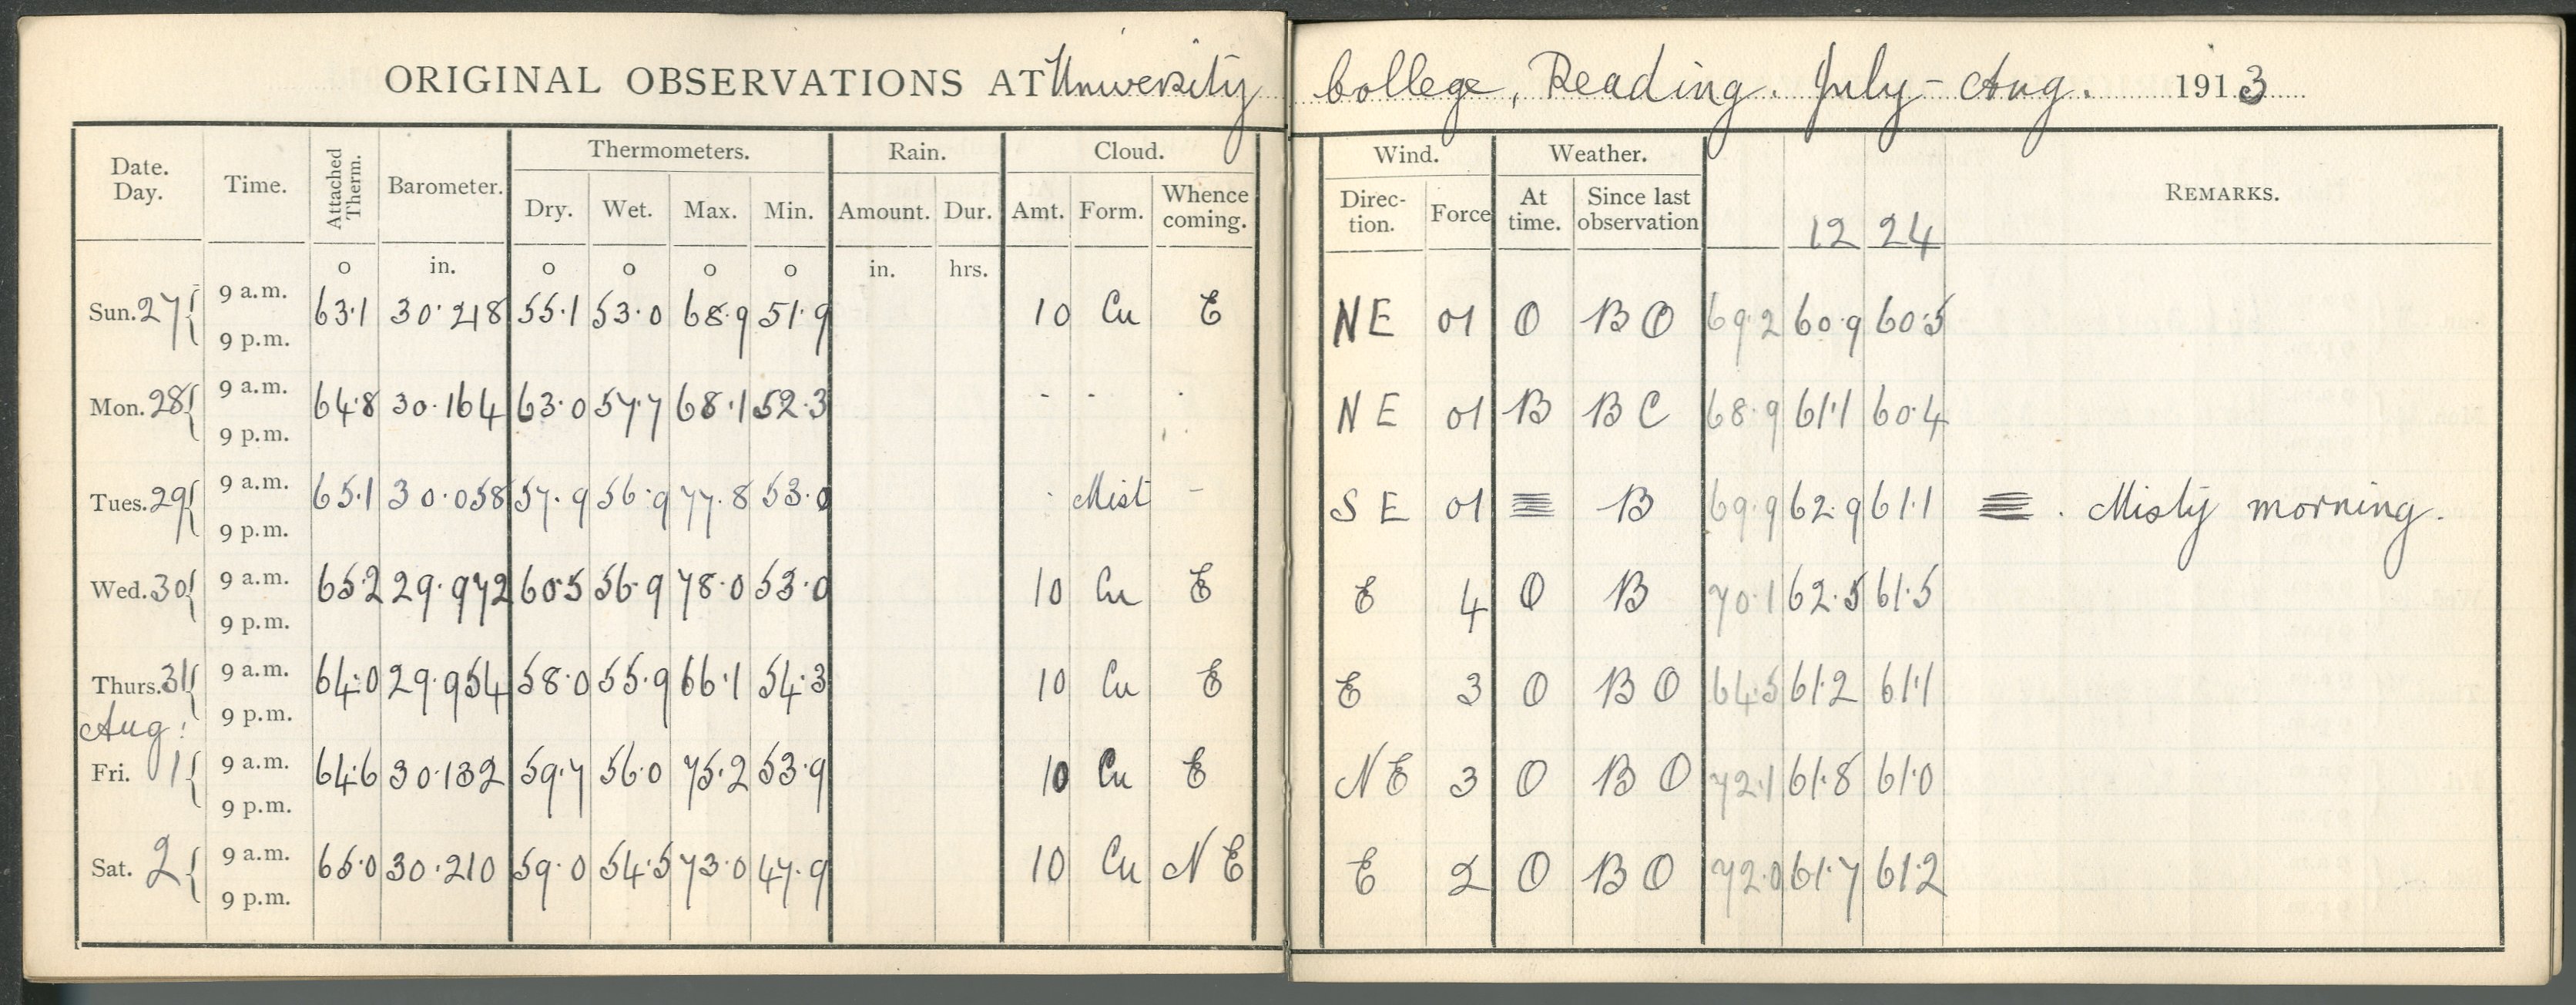 ORIGINAL OBSERVATIONS AT University College, Reading. July - Aug. 1913
Thermometers. Rain. Cloud. Wind. Weather.
Date. Day. Time. Attached Therm. Barometer. Dry. Wet. Max. Min. Amount. Dur. Amt. Form. Whence coming. Direc- tion. Force At time. Since last observation 12 24 REMARKS.
o in. o o o o in. hrs.
Sun. 27 { 9 a.m. 63.1 30.218 55.1 53.0 68.9 51.9 10 Cu E NE 01 O B O 69.2 60.9 60.5
9 p.m.
Mon. 28 { 9 a.m. 64.8 30.164 63.0 57.7 68.1 52.3 - - . N E 01 B B C 68.9 61.1 60.4
9 p.m.
Tues. 29 { 9 a.m. 65.1 30.058 57.9 56.9 77.8 53.0 . Mist - S E 01 ≡ B 69.9 62.9 61.1 ≡. Misty morning.
9 p.m.
Wed. 30 { 9 a.m. 65.2 29.972 60.5 56.9 78.0 53.0 10 Cu E E 4 O B 70.1 62.5 61.5
9 p.m.
Thurs. 31 { 9 a.m. 64.0 29.954 58.0 55.9 66.1 54.3 10 Cu E E 3 O B O 64.5 61.2 61.1
9 p.m.
Aug.
Fri. 1 { 9 a.m. 64.6 30.132 59.7 56.0 75.2 53.9 10 Cu E NE 3 O B O 72.1 61.8 61.0
9 p.m.
Sat. 2 { 9 a.m. 65.0 30.210 59.0 54.5 73.0 47.9 10 Cu N E E 2 O B O 72.0 61.7 61.2
9 p.m.